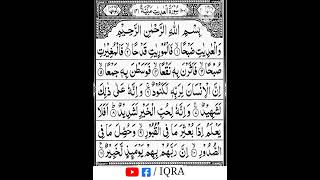 سُوْرَةُ الْعٰدِيٰتِ مَكِّيَّةٌ
بِسْمِ اللّٰهِ الرَّحْمٰنِ الرَّحِيْمِ
وَالْعٰدِيٰتِ ضَبْحًا ۙ فَالْمُوْرِيٰتِ قَدْحًا ۙ فَالْمُغِيْرٰتِ
صُبْحًا ۙ فَاَثَرْنَ بِهٖ نَقْعًا ۙ فَوَسَطْنَ بِهٖ جَمْعًا ۙ
اِنَّ الْاِنْسَانَ لِرَبِّهٖ لَكَنُوْدٌ ۚ وَاِنَّهٗ عَلٰى ذٰلِكَ
لَشَهِيْدٌ ۚ وَاِنَّهٗ لِحُبِّ الْخَيْرِ لَشَدِيْدٌ ؕ اَفَلَا
يَعْلَمُ اِذَا بُعْثِرَ مَا فِى الْقُبُوْرِ ۙ وَحُصِّلَ مَا فِى
الصُّدُوْرِ ۙ اِنَّ رَبَّهُمْ بِهِمْ يَوْمَئِذٍ لَّخَبِيْرٌ
/ IQRA